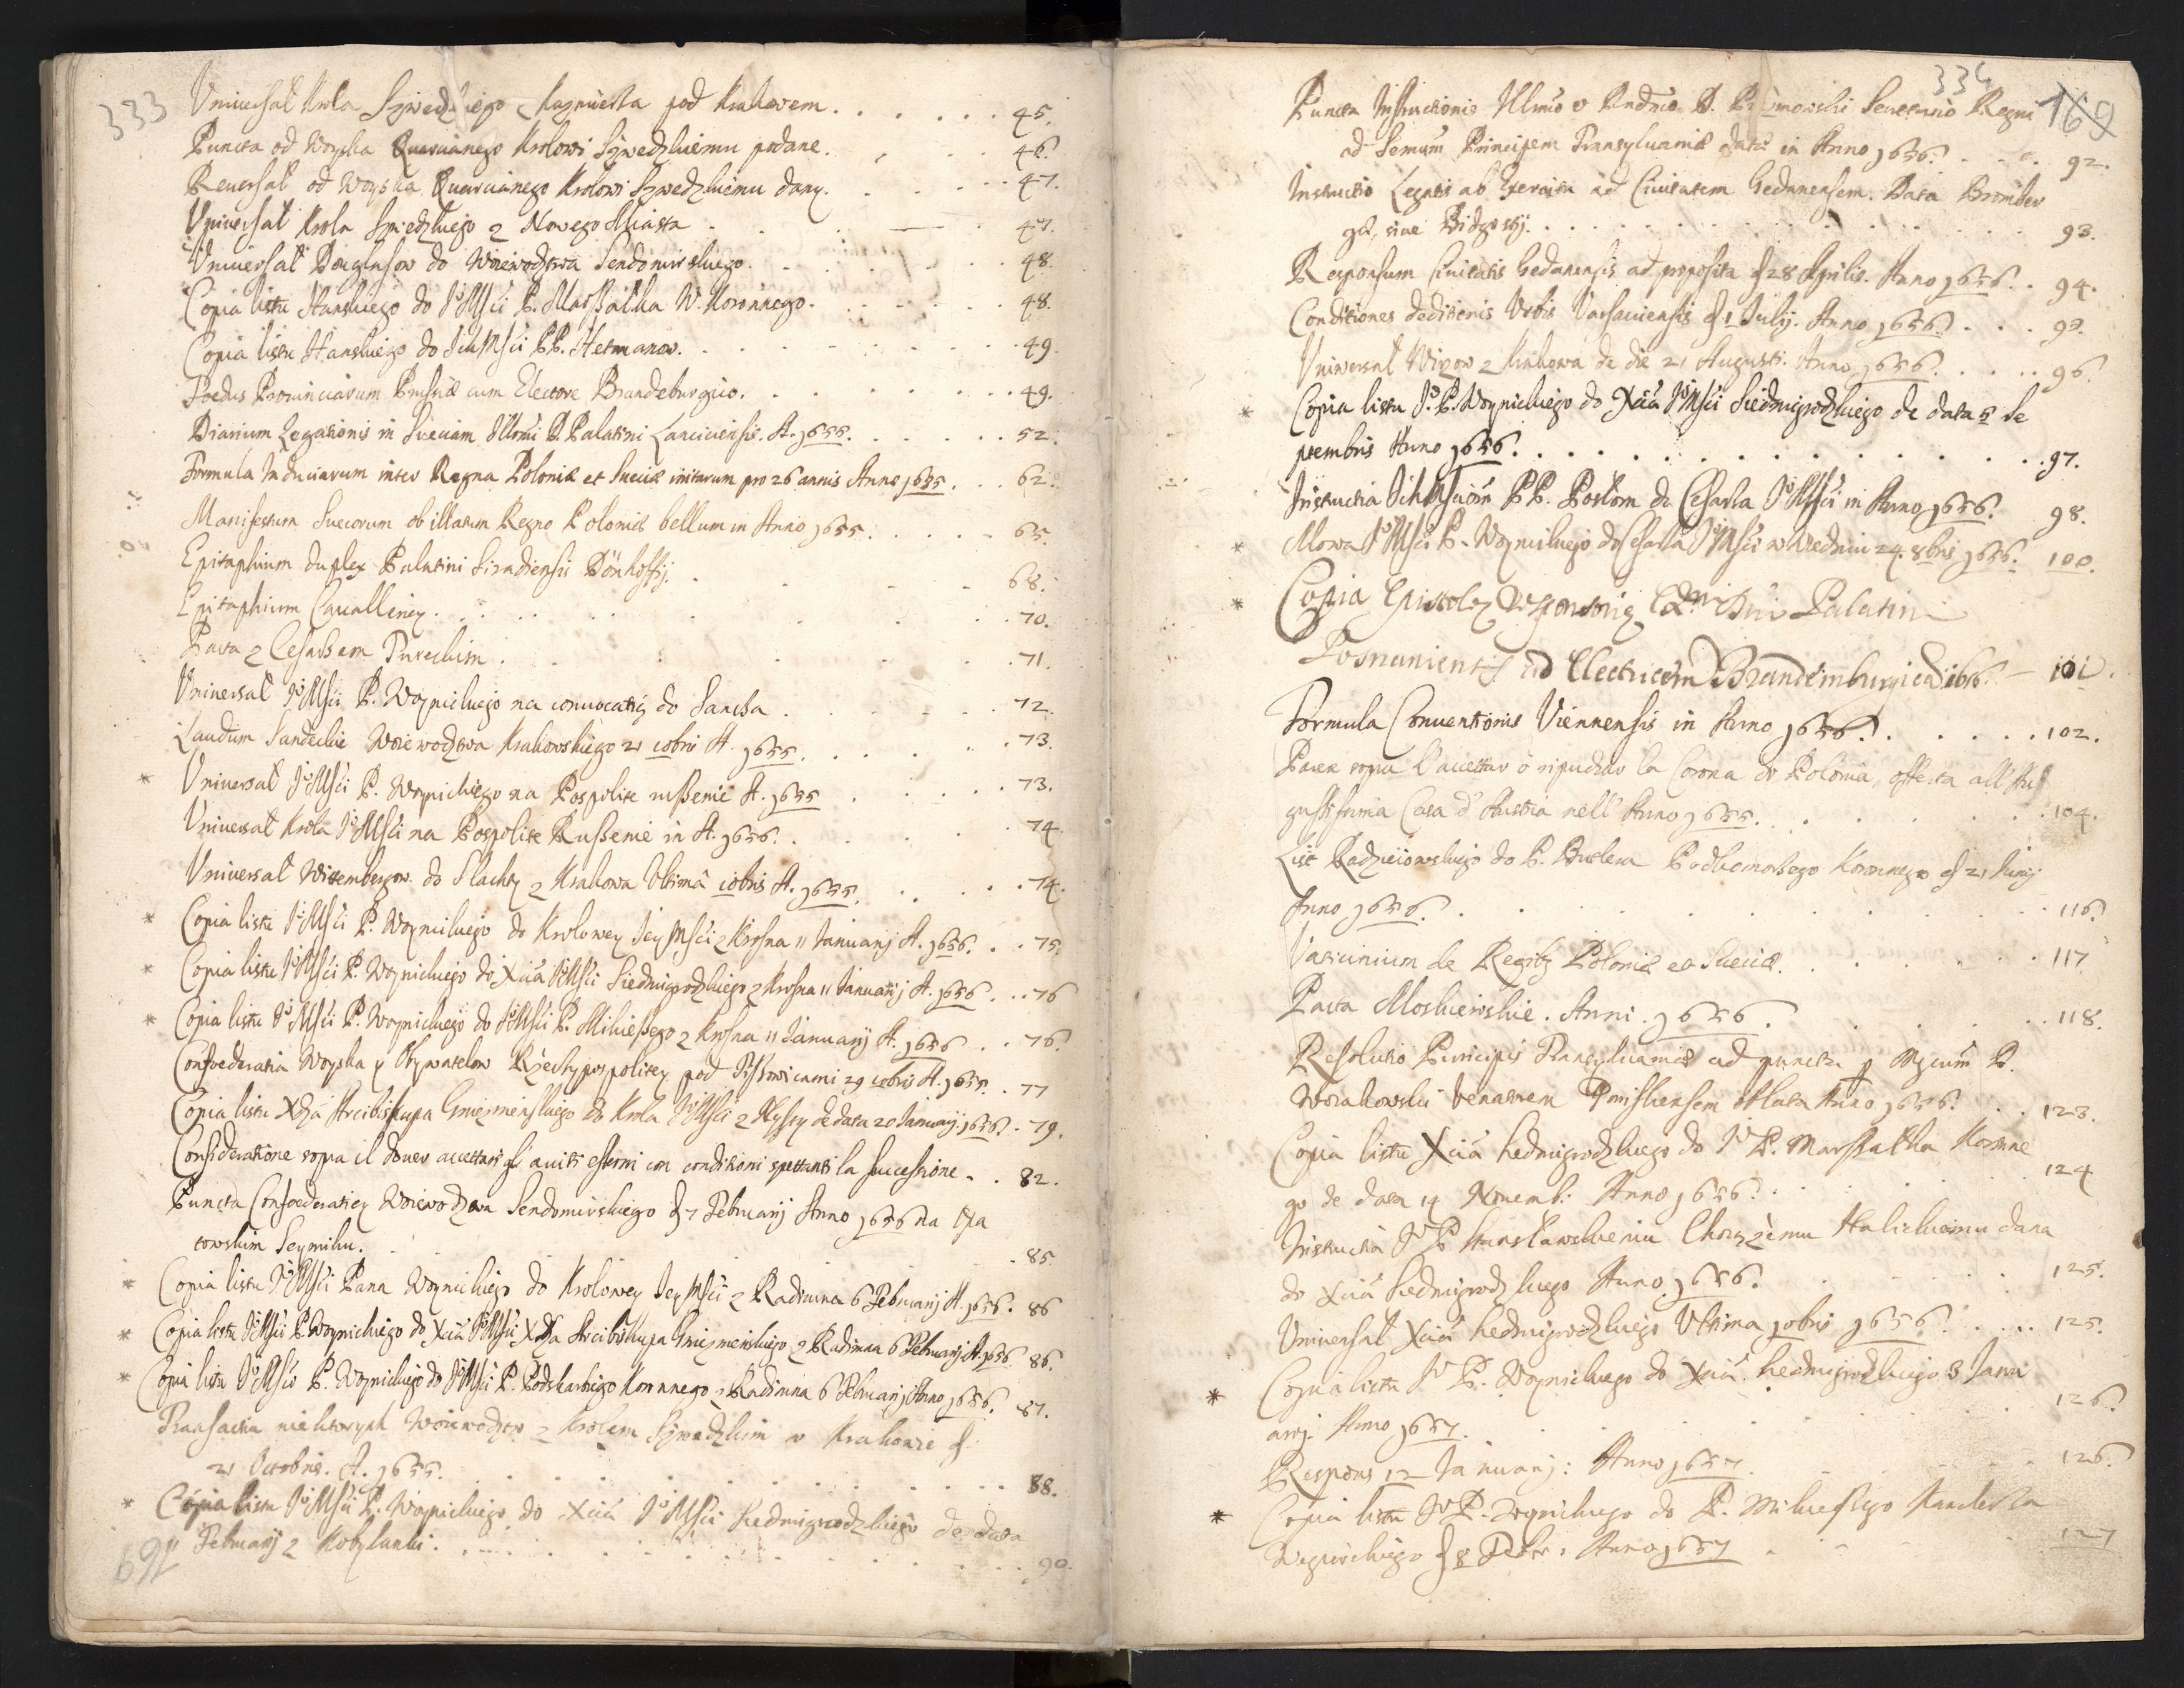 333
Uniwersał Krola Szwedzkiego z Kazmierza pod Krakowem. . . . . . 45.
Puncta od Woyska Quarcianego Krolowi Szwedzkiemu podane. . . . 46.
Reuersał od Woyska Quarcianego Krolowi Szwedzkiemu dany. . . . . 47.
Uniwersał Krola Szwedzkiego z Nowego Miasta . . . 47.
Uniwersał Duglusow do Woiewodztwa Sendomirskiego. . . . . 48.
Copia listu Hanskiego do JeoMści P. Marszałka W. Koronnego. . . . . 48.
Copia listu Hanskiego do IchMści PP. Hetmanow. . . . . . . 49.
Foedus Prouinciarum Prussiæ cum Electore Brandeburgico. . . . . . 49.
Diarium Legationis in Sueciam Illrmi D. Palatini Lanciciensis. A. 1655. . . . . . 52.
Formula Induciarum inter Regna Poloniæ et Sueciæ initarum pro 26 annis Anno 1635. . . 62.
Manifestum Suecorum ob illatum Regno Poloniæ bellum in Anno 1655. . . . . . 65.
Epitaphium duplex Palatini Siradiensis Dönhoffij. . . . 68.
Epitaphium Cavalliney. . . . . . 70.
Pacta z Cesarzem Tureckim. . . . . 71.
Uniwersał JeoMści P. Woynickiego na convocatią do Sancza . . . . . 72.
Laudum Sandeckie Woiewodztwa Krakowskiego 21 xobris A. 1655. . . . . 73.
* Uniwersał JeoMści P. Woynickiego na Pospolite ruszenie A. 1655 . . . . . 73.
Uniwersał Krola JeoMści na Pospolite Ruszenie in A. 1656. . . . 74
Uniwersał Wittembergow do Slachty z Krakowa Ultimâ xobris A. 1655. . . . . 74.
* Copia listu JeoMści P. Woynickiego do Krolowey JeyMści z Krosna 11 Januarij A. 1656. . . 75.
* Copia listu JeoMści P. Woynickiego do Xcia JeoMści Siedmigrodzkiego z Krosna 11 Januarij A. 1656 . . . 76
* Copia listu JeoMści P. Woynickiego do JeoMści P. Mikieszego z Krosna 11 Januarij A. 1656 . . 76.
Confoederatia Woyska y Obywatelow Rzeczypospolitey pod Tyszowicami 29 xobris A. 1655. . 77
Copia listu Xdza Arcibiskupa Gnieznienskiego do Krola JeoMści z Nyssy de data 20 Januarij 1656. . 79.
Consideratione sopra il douer accettarsi gl' auiti esterni con conditioni spettanti la successione . . 82.
Puncta Confoederatiey Woiewodztwa Sendomirskiego d 7 Februarij Anno 1656 na Opa
towskim Seymiku. . . . 85.
* Copia listu JeoMści Pana Woynickiego do Krolowey JeyMści z Radimna 6 Februarij A. 1656. 86
* Copia listu JeoMści P. Woynickiego do Xcia JeoMści Xdza Arcibiskupa Gnieznienskiego z Radimna 6 Februarij A. 1656 86.
* Copia listu JeoMści P. Woynickiego do JeoMści P. Podskarbiego Koronnego z Radimna 6 Februarij Anno 1656. 87.
Transactia niektorych Woiewodztw z Krolem Szwedzkim w Krakowie d
21 Octobris. A. 1655. . . . . . . . . . 88.
* Copia listu JeoMści P. Woynickiego do Xcia JeoMści Siedmigrodzkiego de data
11 Februarij z Kobylanki. . . . . . . . . . 90.
169
334
169
Puncta Instructionis Illmo et Rndmo D. Secretario Regni
ad Serenissimum Principem Transyluaniæ data in Anno 1656. . . . 92.
Instructio Legatis ab Exercitu ad Ciuitatem Gedanensem. Data Brombur
gæ, siue Bidgostij. . . . . . . . . . . . 93.
Responsum Ciuitatis Gedanensis ad proposita d 28 Aprilis. Anno 1656. . 94.
Conditiones deditionis Urbis Varsauiensis d 1 Julij. Anno 1656. . . . 95.
Uniwersał Wirzow z Krakowa de die 21 Augusti. Anno 1656. . . . . 96.
* Copia listu Jo. P. Woynickiego do Xcia JoMści Siedmigrodzkiego de data 5 Se
ptembris Anno 1656. . . . . . . . . . . . 97.
Instructia IchMściom PP. Posłom do Cesarza JeoMści in Anno 1656. 98.
* Mowa JeoMści P. Woynickiego do Cesarza JeoMści w Wiedniu 24 8bris 1656. 100.
* Copia Epistolæ Responsoriæ Palatini
Posnaniensis ad Electricem Brandemburgicã 1656. — 101.
Formula Conuentionis Viennensis in Anno 1656. . . . . . . 102.
Parer sopra l'accettar ò ripudiar la Corona di Polonia, offerta all' Au
gustissima Casa d' Austria nell' Anno 1655. . . . . . . 104.
List Radzieiowskiego do P. Butlera Podkomorzego Koronnego d 21 Junij
Anno 1656. . . . . . . . . . . 116.
Vaticinium de Regibus Poloniæ et Sueciæ. . . . . . . 117
Pacta Moskiewskie. Anni. 1656. . . . . . 118.
Resolutio Principis Transyluaniæ ad puncta P.
Worakowski Venatorem Premisliensem allata Anno 1656. . . 123.
Copia listu Xcia Siedmigrodzkiego do Jo P. Marszałka Koronne
go de data 14 Nouemb: Anno 1656. . . . . . 124
Instructia Jo P. Stanisławskiemu Chorązemu Halickiemu dana
do Xcia Siedmigrodzkiego Anno 1656. . . . . . 125.
Uniwersał Xcia Siedmigrodzkiego Ultima xobris 1656. . . . . 125.
* Copia listu Jo P. Woynickiego do Xcia Siedmigrodzkiego 3 Janu
arij. Anno 1657. . . . . . . . 126.
Respons 12 Januarij: Anno 1657. . . . . 126.
* Copia listu Jo P. Woynickiego do P. Mikieszego Kanclerza
Węgierskiego d 8 Febr: Anno 1657 . . . . 127